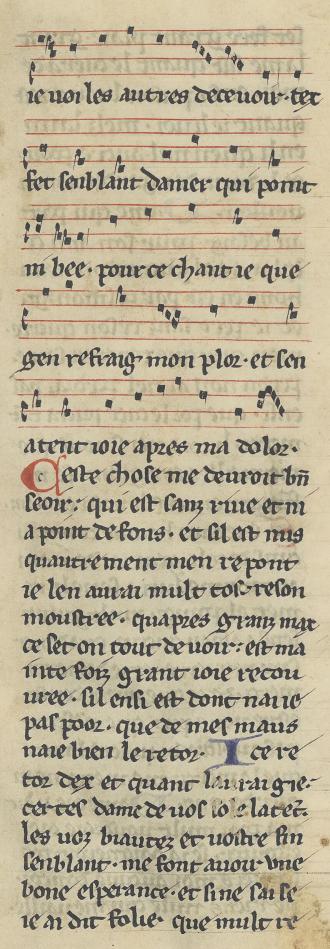 ie voi les autres decevoir· tex
fet senblant damer qui point
ni bee· pour ce chant ie que
gen refraig mon plor· et sen
atent ioie apres ma dolor·
Ceste chose me devroit bn̄
seoir· qui est sanz rive et ni
a point de fons· et sil est nus
quautrement men repont
ie len aurai mult tost reson
moustree· quapres granz max
ce set on tout de voir· est ma
inte foiz grant ioie recou
vree· sil ensi est dont nai ie
pas poor· que de mes maus
naie bien le retor· I ce re
tor dex et quant laurai gie·
certes dame de vos
les voz biautez et vostre fin
senblant· me font avoir une
bone esperance· et si ne sai se
ie ai dit folie· que mult re